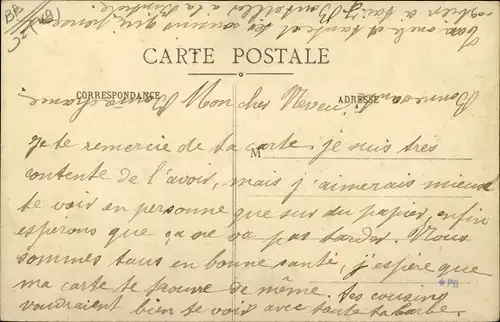 BB
CARTE POSTALE
CORRESPONDANCE
ADRESSE
M
Mon cher Neveu
Je te remercie de ta carte. je suis très
contente de l'avoir, mais j'aimerais mieux
te voir en personne que sur du papier, enfin
esperons que ça ne va pas tarder. Nous
sommes tous en bonne santé, j'espère que
ma carte te trouve de même tes cousins
voudraient bien te voir avec toute ta barbe.
Bonne santé
Bonne chance
PB